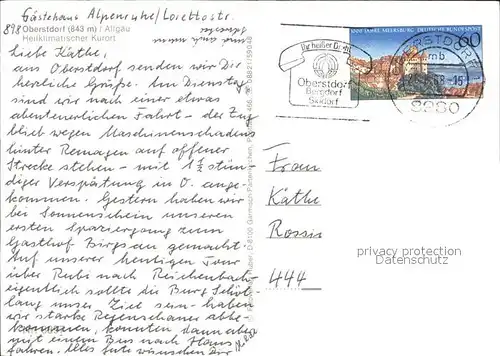 Gästehaus Alpenruhe/Lorettostr.
898 Oberstdorf (843 m) / Allgäu
Heilklimatischer Kurort
Liebe Käthe,
aus Oberstdorf senden wir Dir
herzliche Grüße. Am Dienstag
sind wir nach einer etwas
abenteuerlichen Fahrt - der Zug
blieb wegen Maschinenschadens
hinter Remagen auf offener
Strecke stehen - mit 1 1/2 stün-
diger Verspätung in O. ange-
kommen. Gestern haben wir
bei Sonnenschein unseren
ersten Spaziergang zum
Gasthof Birgsau gemacht.
Auf unserer heutigen Tour
über Rubi nach Reichenbach
eigentlich sollte die Burg Schöl-
lang unser Ziel sein - haben
wir starke Regenschauer abbe-
kommen, konnten dann aber
mit einem Bus nach Haus
fahren. Alles Gute wünschen Dir
Ihr heißer Draht
Oberstdorf
Bergdorf
Skidorf
1000 JAHRE MEERSBURG DEUTSCHE BUNDESPOST
60
OBERSTDORF
mb
-15
8980
Frau
Käthe
Rossis
444
privacy protection
Datenschutz